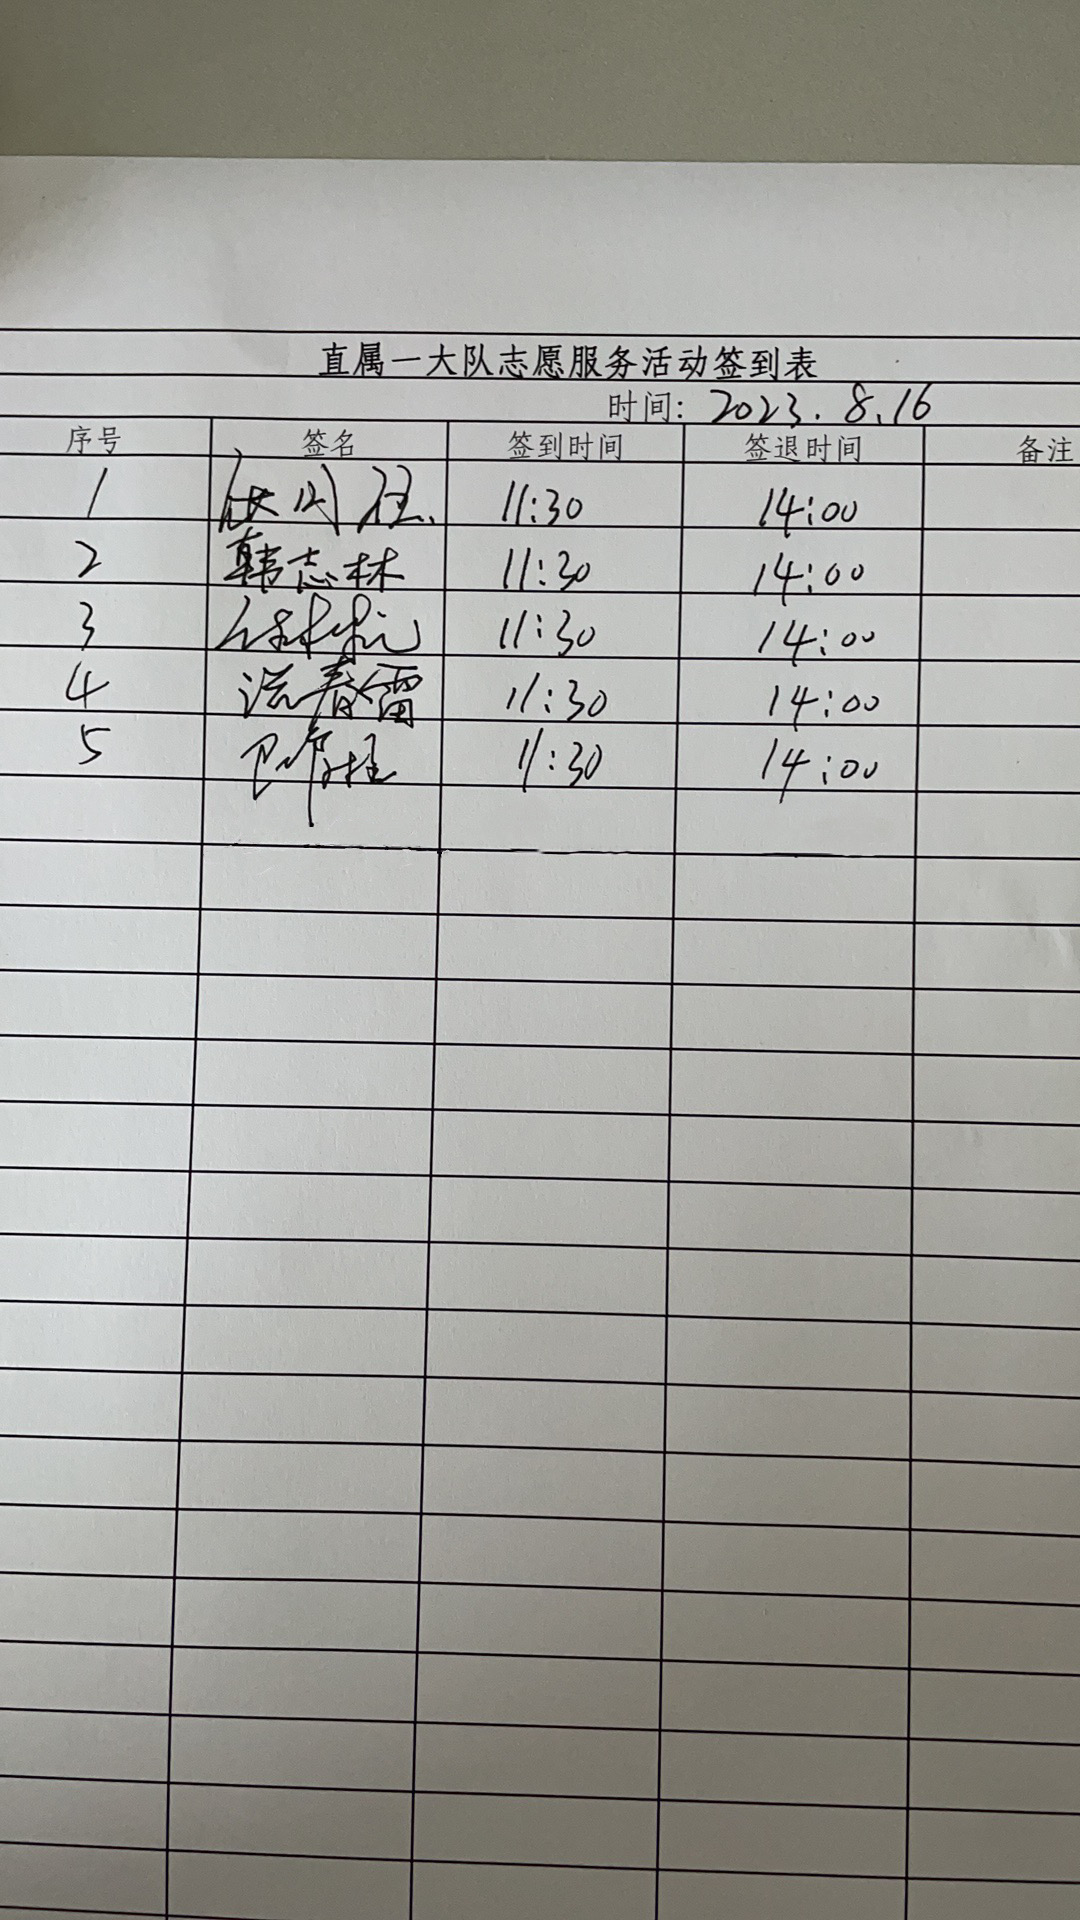 直属一大队志愿服务活动签到表
时间: 2023.8.16
序号 签名 签到时间 签退时间 备注
1 11:30 14:00
2 韩志林 11:30 14:00
3 11:30 14:00
4 洪春雷 11:30 14:00
5 11:30 14:00